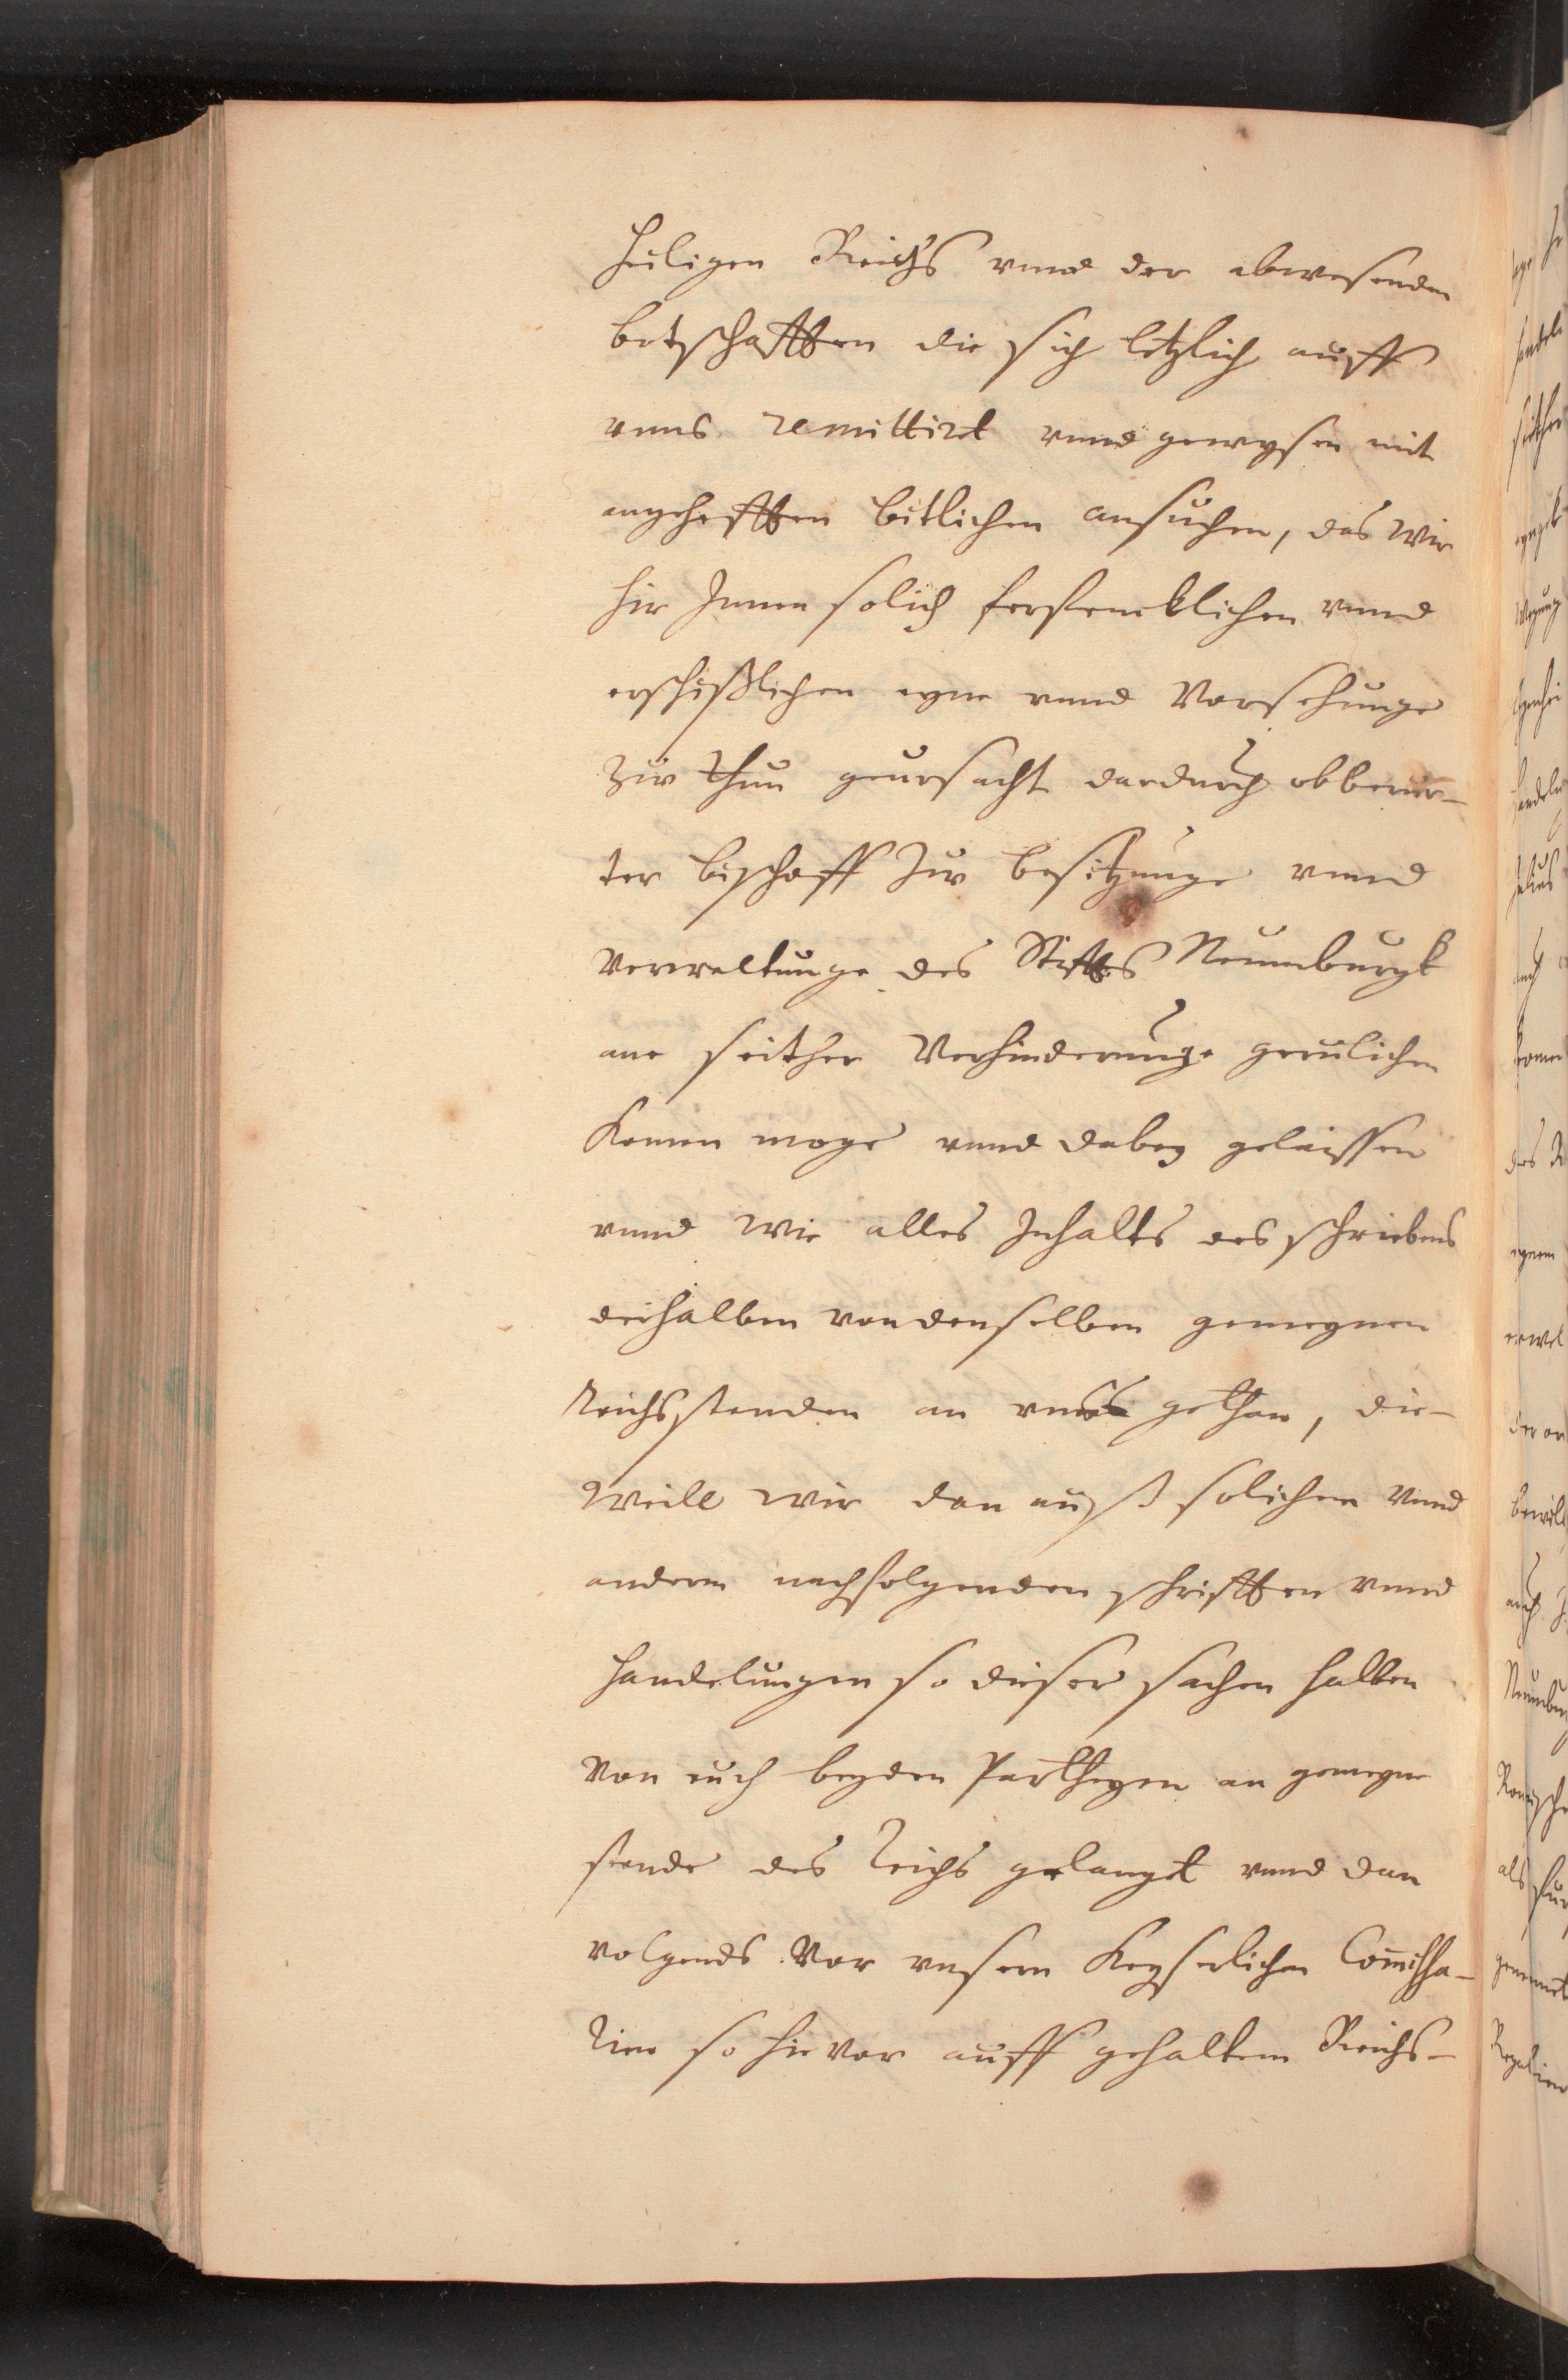 heiligen Reichs vnnd der abwesenden
botschafften die sich letzlich auff
vnns remittirt vnnd gewysen mit
angehefften bitlichen ansuchen, das wir
hir Innen solich
erschißlichen eyne vnnd Vorsehunge
zuv thun geursacht dardurch obbenen-
ter bischoff zuv besitzunge vnnd
verwaltunge des Stiffts Neumburgk
ane seither Verhinderunge geruligen
komen moge vnnd dabey gelaissen
vnnd wie alles Inhalts des schriebens
deshalben von denselben gemeynen
Reichsstenden an vnns gethan, die-
weile wir dan auß solichem vnnd
andern nachfolgenden schrifften vnnd
handelungen so dieser sachen halben
von euch beyden Partheyen an gemeyne
stende des Reichs gelangt vnnd dan
volgends vor vnsern Keyserlichen Commissa-
rien so hievor auff gehaltem Reichs-